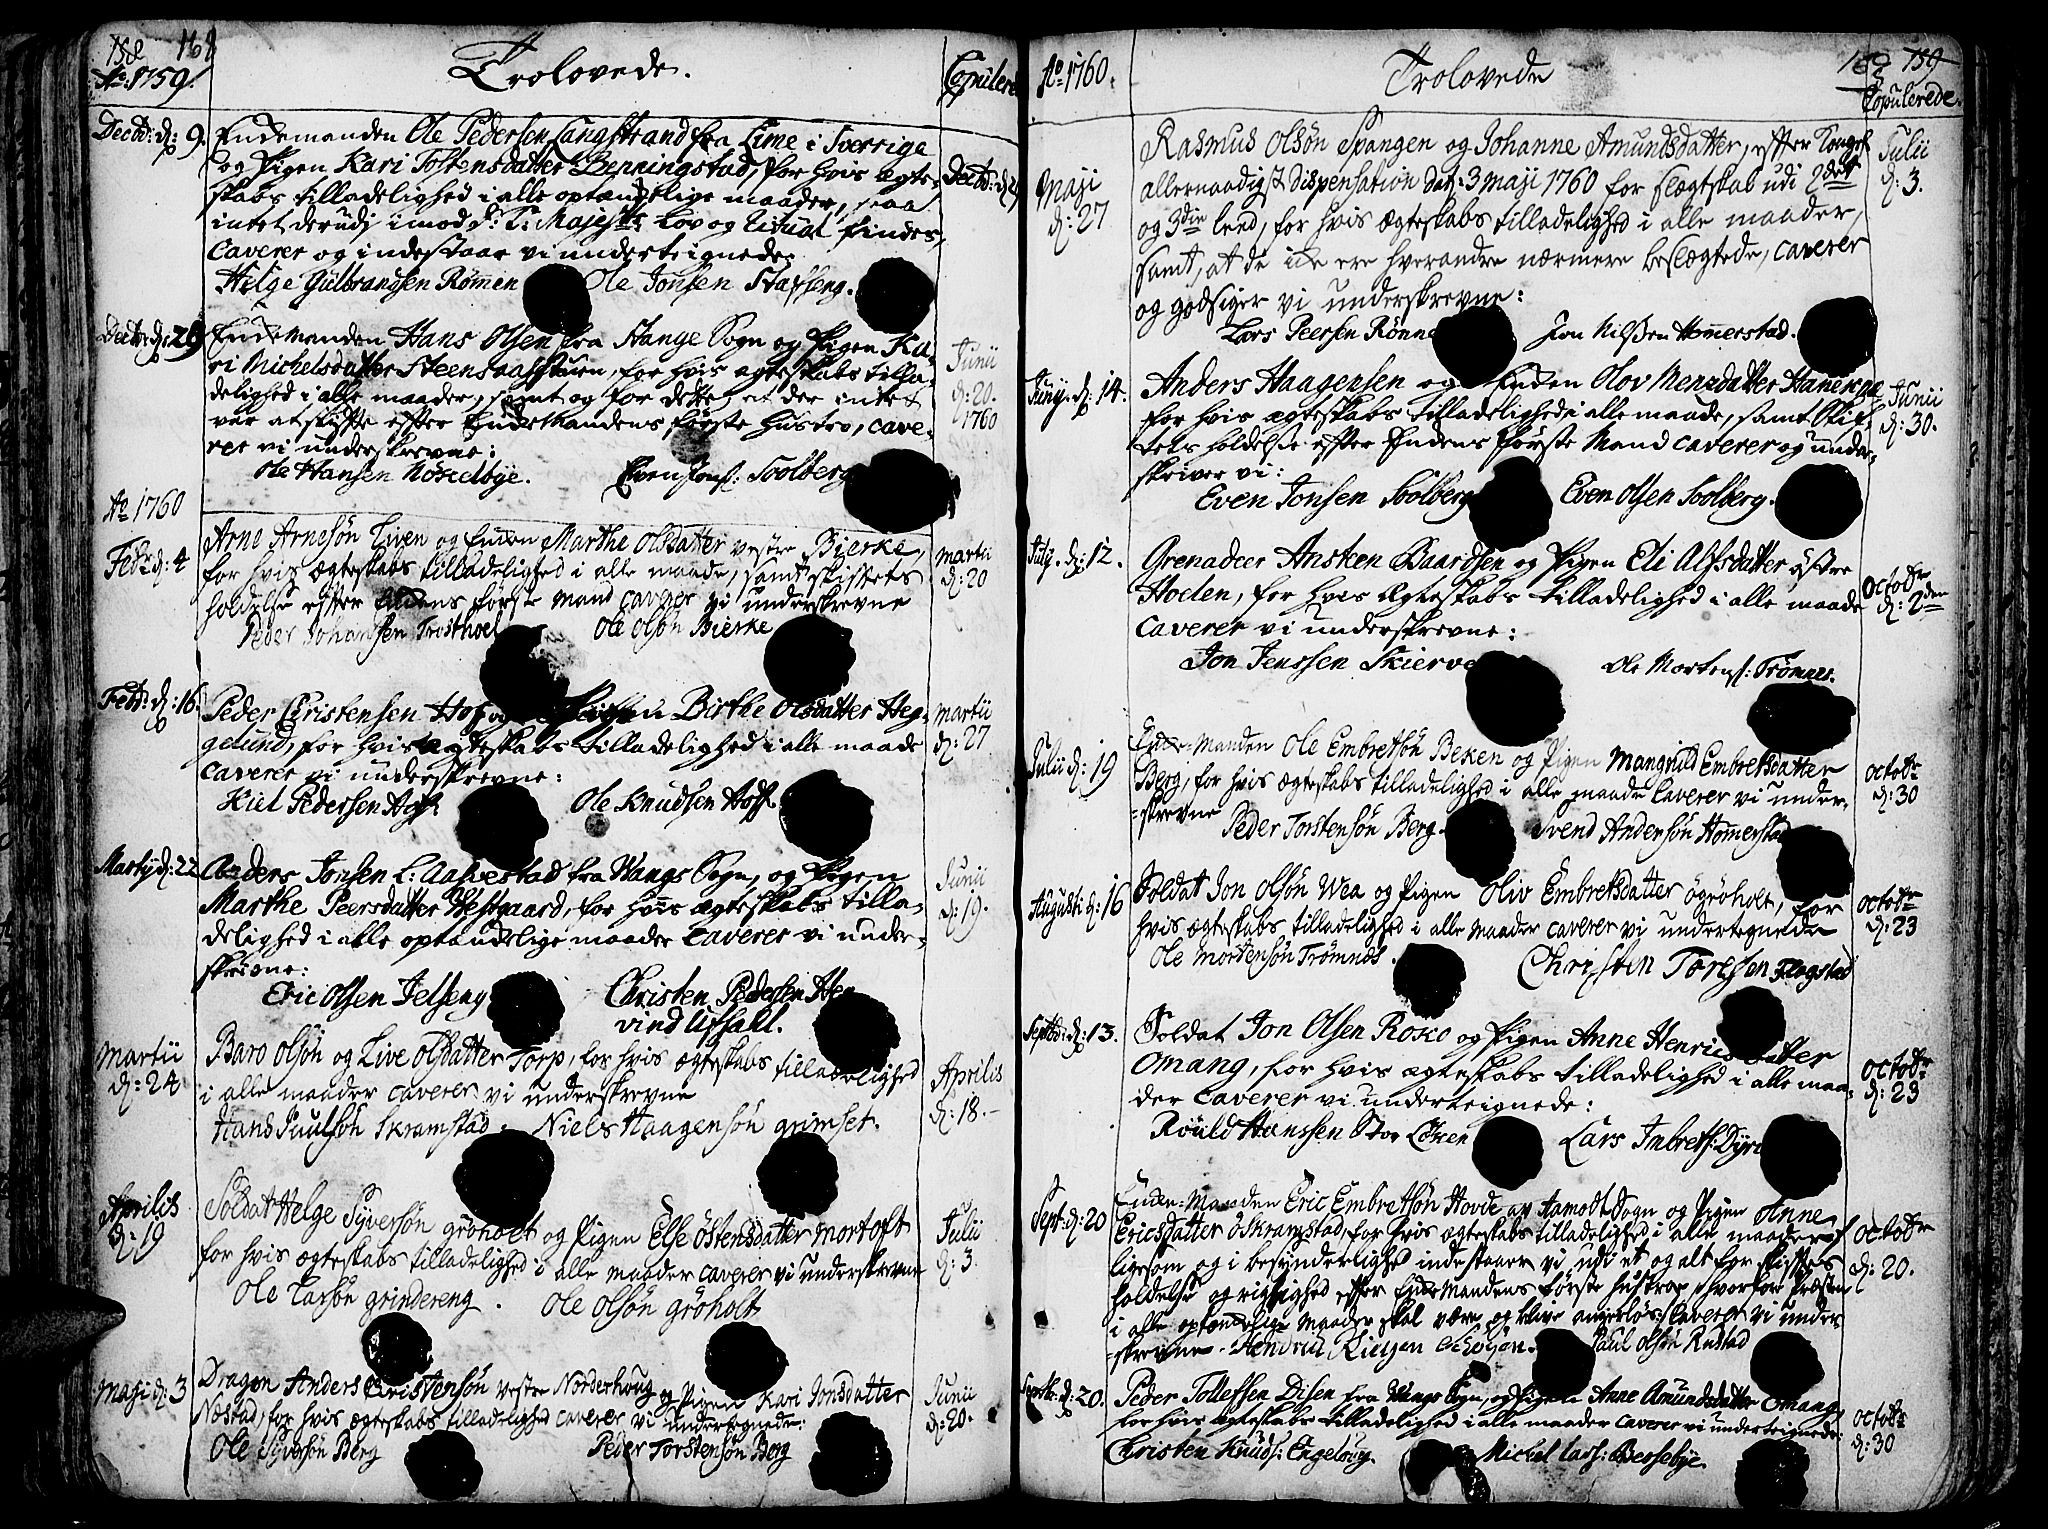 158 168
Ao. 1759.
Trolovede.
Copulerede
Decbr: d: 9.
Enckemanden Ole Pedersen Langstrand fra Lime i Sverrige
og Pigen Kari Tostensdatter Benningstad, for hvis ægte-
skabs tilladelighed i alle optænkelige maader, saa
intet derudj imod Kl. Majests: Lov og Ritual findes,
Caverer og indestaar vi underteignede.
Decbr: d: 29
Helge Gulbrandsen Rømen Ole Jonsen Staffseng.
Decbr: d: 29
Enckemanden Hans Olsen fra Stange Sogn og Pigen Ka-
ri Michelsdatter Steensaasstuen, for hvis ægteskabs tilla-
delighed i alle maader, samt og for dette, at der intet
var at skifte efter Enckemandens første Hustro, cave-
rer vi underskrevne:
Junii
d: 20.
1760
Ole Hansen Nøsedbye. Even Jons: Soolberg
Ao 1760
Febr: d: 4
Arne Arnesøn Liven og Enken Marthe Olsdatter vestre Bierke,
for hvis ægteskabs tilladelighed i alle maade, samt skiftets
holdelse efter Enkens første mand caverer vi underskrevne
Martii
d: 20
Peder Johansen Trosthoel Ole Olsøn Bierke
Febr: d: 16.
Peder Christensen Hof og Pigen Birthe Olsdatter Heg-
gelund, for hvis ægteskabs tilladelighed i alle maade
caverer vi underskrevne:
Martii
d: 27
Kiel Pedersen Hoff. Ole Knudsen Hoff
Martij d: 22
Anders Jonsen L: Aalvestad fra Wangs Sogn, og Pigen
Marthe Peersdatter Westgaard, for hvis ægteskabs tilla-
delighed i alle optænckelige maader caverer vi under-
skrevne:
Junii
d: 19.
Eric Olsen Jelseng Christen Pedersen Hee
vind Ufsahl.
Martii
d: 24
Baro Olsøn og Live Olsdatter Torp, for hvis ægteskabs tilladelighed
i alle maader caverer vi underskrevne
Aprilis
d: 18.
Hans Juulsøn Skramstad. Niels Haagensøn grimset.
Aprilis
d: 19
Soldat Helge Syversøn grøholt og Pigen Else Østensdatter Mortoft
for hvis ægteskabs tilladelighed i alle maader caverer vi underskrevne
Julii
d: 3.
Ole Larsøn grindereng. Ole Olsøn grøholt
Maji d: 3
Dragon Anders Christensøn vestre Norderhoug og Pigen Kari Jonsdatter
Næstad, for hvis ægteskabs tilladelighed caverer vi undertegnede:
Junii
d: 20.
Ole Syversøn Berg Peder Torstensøn Berg
Ao 1760.
Trolovede
159
Copulerede.
Maji
d: 27
Rasmus Olsøn Spangen og Johanne Amundsdatter, efter Kongel:
allernaadigst Dispensation dat: 3 Maji 1760 for slægtskab udi 2det
og 3die leed, for hvis ægteskabs tilladelighed i alle maader,
samt, at de icke ere hverandre nærmere beslægtede, caverer
og godsiger vi underskrevne:
Julii
d: 3.
Lars Peersen Rønne Jon Nilssen Homerstad.
Junij. d: 14.
Anders Haagensen og Encken Olov Mensdatter Hanekne
for hvis ægteskabs tilladelighed i alle maade, samt Skif-
tets holdelse efter Enckens første Mand caverer og under-
skriver vi:
Junii
d: 30.
Even Jonsen Soolberg Even Olsen Soolberg.
Julij. d: 12.
Grenadeer Ansten Baardsen og Pigen Eli Alfsdatter østre
Hoelen, for hvis ægteskabs tilladelighed i alle maade
caverer vi underskrevne:
Octobr
d: 2den
Jon Jenssen Skierve Ole Mortens: Trømnes.
Julii d: 19
Encke-Manden Ole Embretsøn Beken og Pigen Mangnild Embretsdatter
Berg, for hvis ægteskabs tilladelighed i alle maade Caverer vi under-
skrevne
Octobr
d: 30
Peder Torstensøn Berg. Svend Andersøn Homerstad
Augusti d: 16
Soldat Jon Olsøn Wea og Pigen Oliv Embretsdatter øgrøholt, for
hvis ægteskabs tilladelighed i alle maader caverer vi undertegnede
Octobr
d: 23
Ole Mortensøn Trømnes. Christen Toresen Flagstad
Septbr: d: 13.
Soldat Jon Olsen Roko og Pigen Anne Henricsdatter
Omang, for hvis ægteskabs tilladelighed i alle maa-
der caverer vi underteignede:
Octobr
d: 23
Rouild Hanssen Stor Løken Lars Imbrets: Dyre
Sept: d: 20
Encke-Manden Eric Embretsøn Hovde av Aamodt Sogn og Pigen Anne
Ericsdatter ø Skramstad, for hvis ægteskabs tilladelighed i alle maader
ligesom og i besynderlighed indestaaer vi, udi et og alt for skiftes
holdelse og rigtighed efter Encke-Mandens første Hustrue, hvorfor Præsten
i alle optænckelige Maader skal være og blive angerløs: Caverer vi under
skrevne.
Octobr
d: 20.
Paul Olsøn Rustad
Septbr: d: 20.
Peder Tollefsen Disen fra Wangs Sogn, og Pigen Anne Amundsdatter Omang,
for hvis ægteskabs tilladelighed i alle maader caverer vi underteignede:
Octobr
d: 30
Christen Knuds: Engeloug. Mickel Lars: Bersebye.